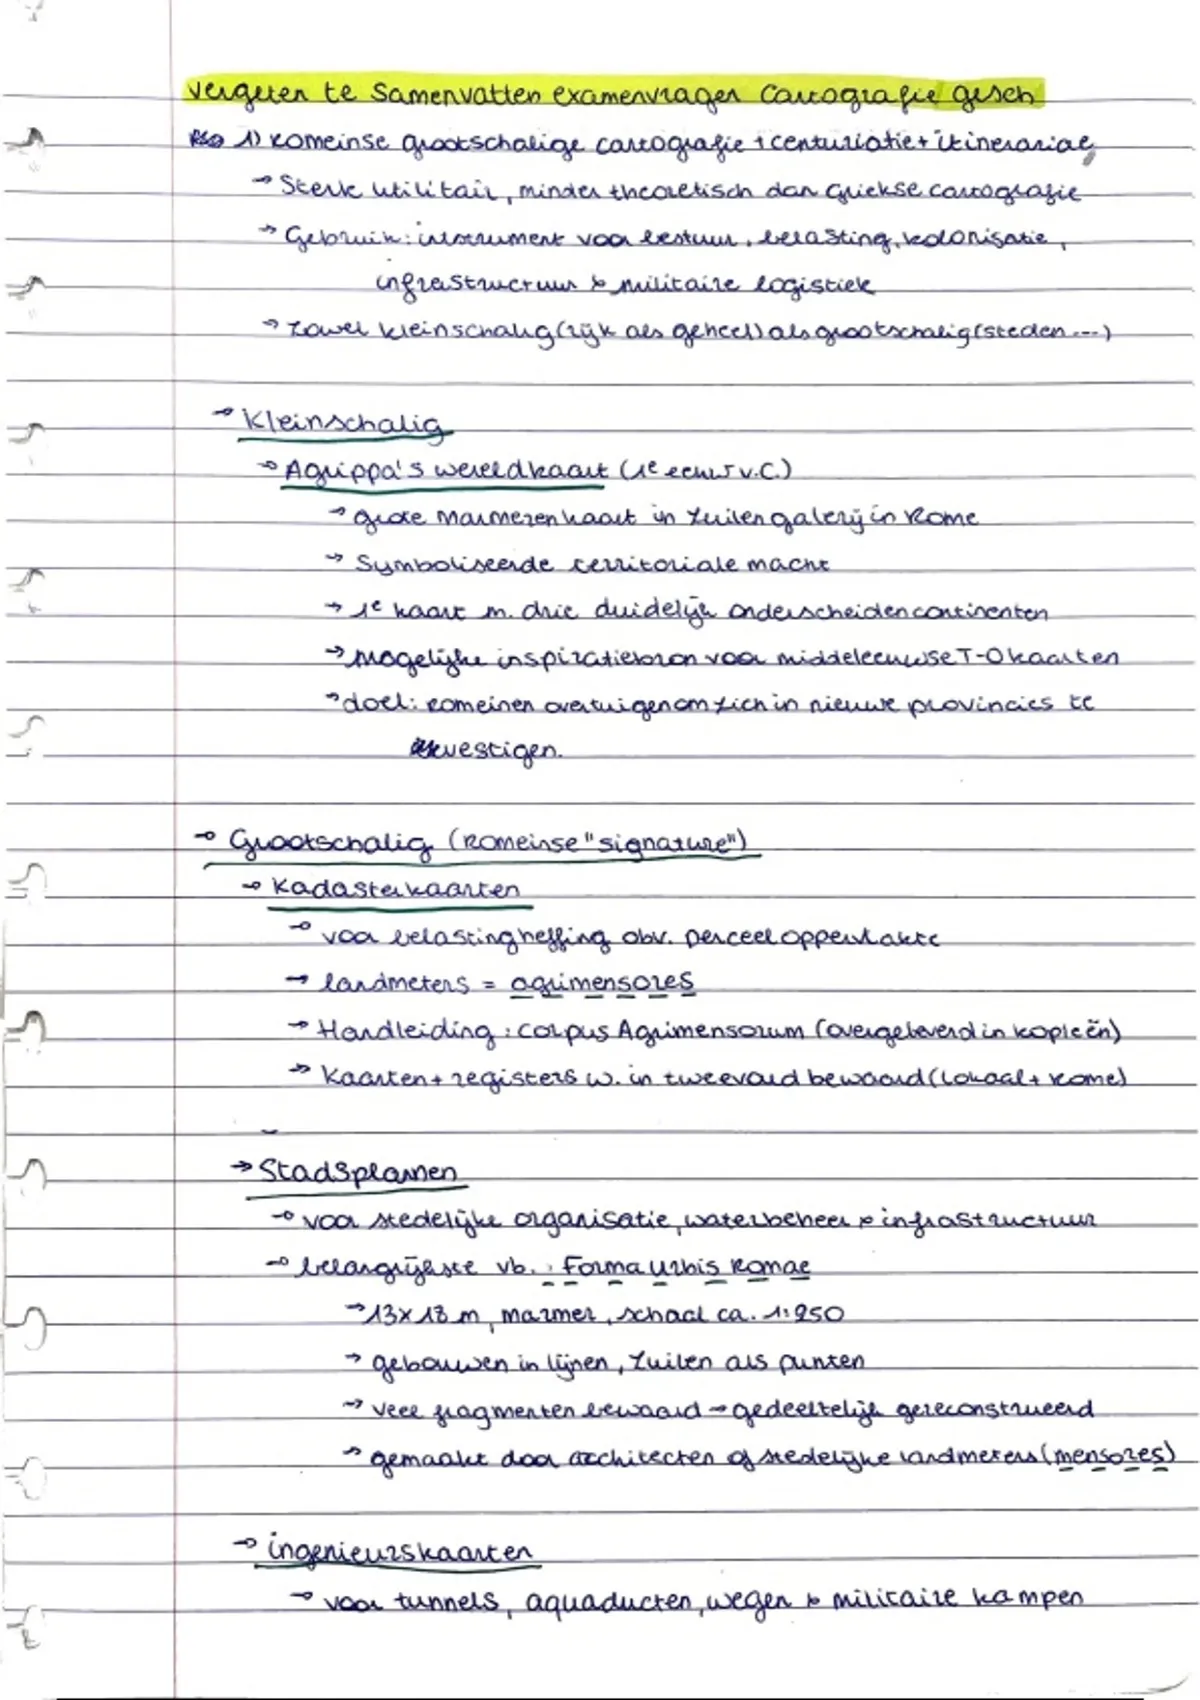 vergeten te Samenvatten examenvragen Cartografie gesch
1) Romeinse grootschalige cartografie + centuriatie + itinerariae
→ Sterk utilitair, minder theoretisch dan Griekse cartografie
→ Gebruik: instrument voor bestuur, belasting, kolonisatie,
infrastructuur & militaire logistiek
→ Zowel kleinschalig (rijk als geheel) als grootschalig (steden ...)
→ Kleinschalig
→ Agrippa's wereldkaart (1e eeuw v.C.)
→ grote marmeren kaart in zuilengalerij in Rome
→ Symboliseerde territoriale macht
→ 1e kaart m. drie duidelijk onderscheiden continenten
→ mogelijke inspiratiebron voor middeleeuwse T-O kaarten
→ doel: Romeinen overtuigen om zich in nieuwe provincies te
vestigen.
→ Grootschalig (Romeinse "signature")
→ Kadasterkaarten
→ voor belastingheffing obv. perceeloppervlakte
→ landmeters = agrimensores
→ Handleiding: Corpus Agrimensorum (overgeleverd in kopieën)
→ Kaarten + registers w. in tweevoud bewaard (lokaal + Rome)
→ Stadsplannen
→ voor stedelijke organisatie, waterbeheer & infrastructuur
→ belangrijkste vb.: Forma Urbis Romae
→ 13x18 m, marmer, schaal ca. 1:250
→ gebouwen in lijnen, zuilen als punten
→ veel fragmenten bewaard → gedeeltelijk gereconstrueerd
→ gemaakt door architecten of stedelijke landmeters (mensores)
→ ingenieurskaarten
→ voor tunnels, aquaducten, wegen & militaire kampen